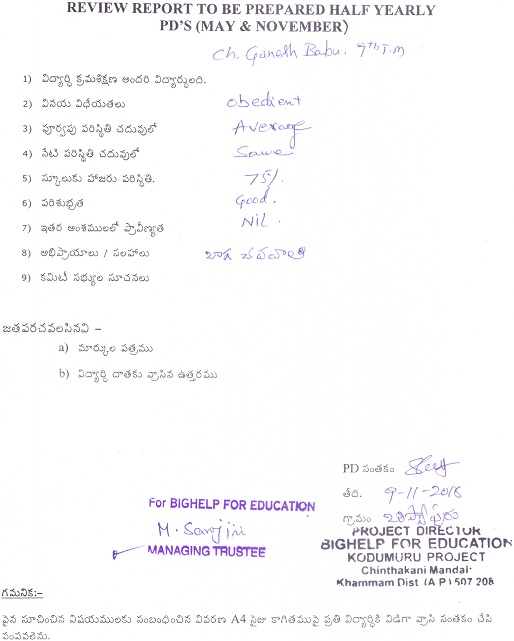 REVIEW REPORT TO BE PREPARED HALF YEARLY
PD'S (MAY & NOVEMBER)
Ch. Ganesh Babu. 9th T.M
1) విద్యార్థి క్రమశిక్షణ ఆందరి విద్యార్థులది.
2) వినయ విధేయతలు obedient
3) పూర్వపు పరిస్థితి చదువులో Average
4) నేటి పరిస్థితి చదువులో Same
5) స్కూలుకు హాజరు పరిస్థితి. 75%.
6) పరిశుభ్రత Good.
7) ఇతర అంశములలో ప్రావీణ్యత Nil.
8) అభిప్రాయాలు / సలహాలు బాగ చదవాలి
9) కమిటీ సభ్యుల సూచనలు
జతపరచవలసినవి –
a) మార్కుల పత్రము
b) విద్యార్థి దాతకు వ్రాసిన ఉత్తరము
PD సంతకం
తేది. 9-11-2018
గ్రామం
For BIGHELP FOR EDUCATION
MANAGING TRUSTEE
PROJECT DIRECTOR
BIGHELP FOR EDUCATION
KODUMURU PROJECT
Chinthakani Mandal
Khammam Dist (A P) 507 208
గమనిక:-
పైన సూచించిన విషయములకు సంబంధించిన వివరణ A4 సైజు కాగితముపై ప్రతి విద్యార్థికి విడిగా వ్రాసి సంతకం చేసి
పంపవలెను.